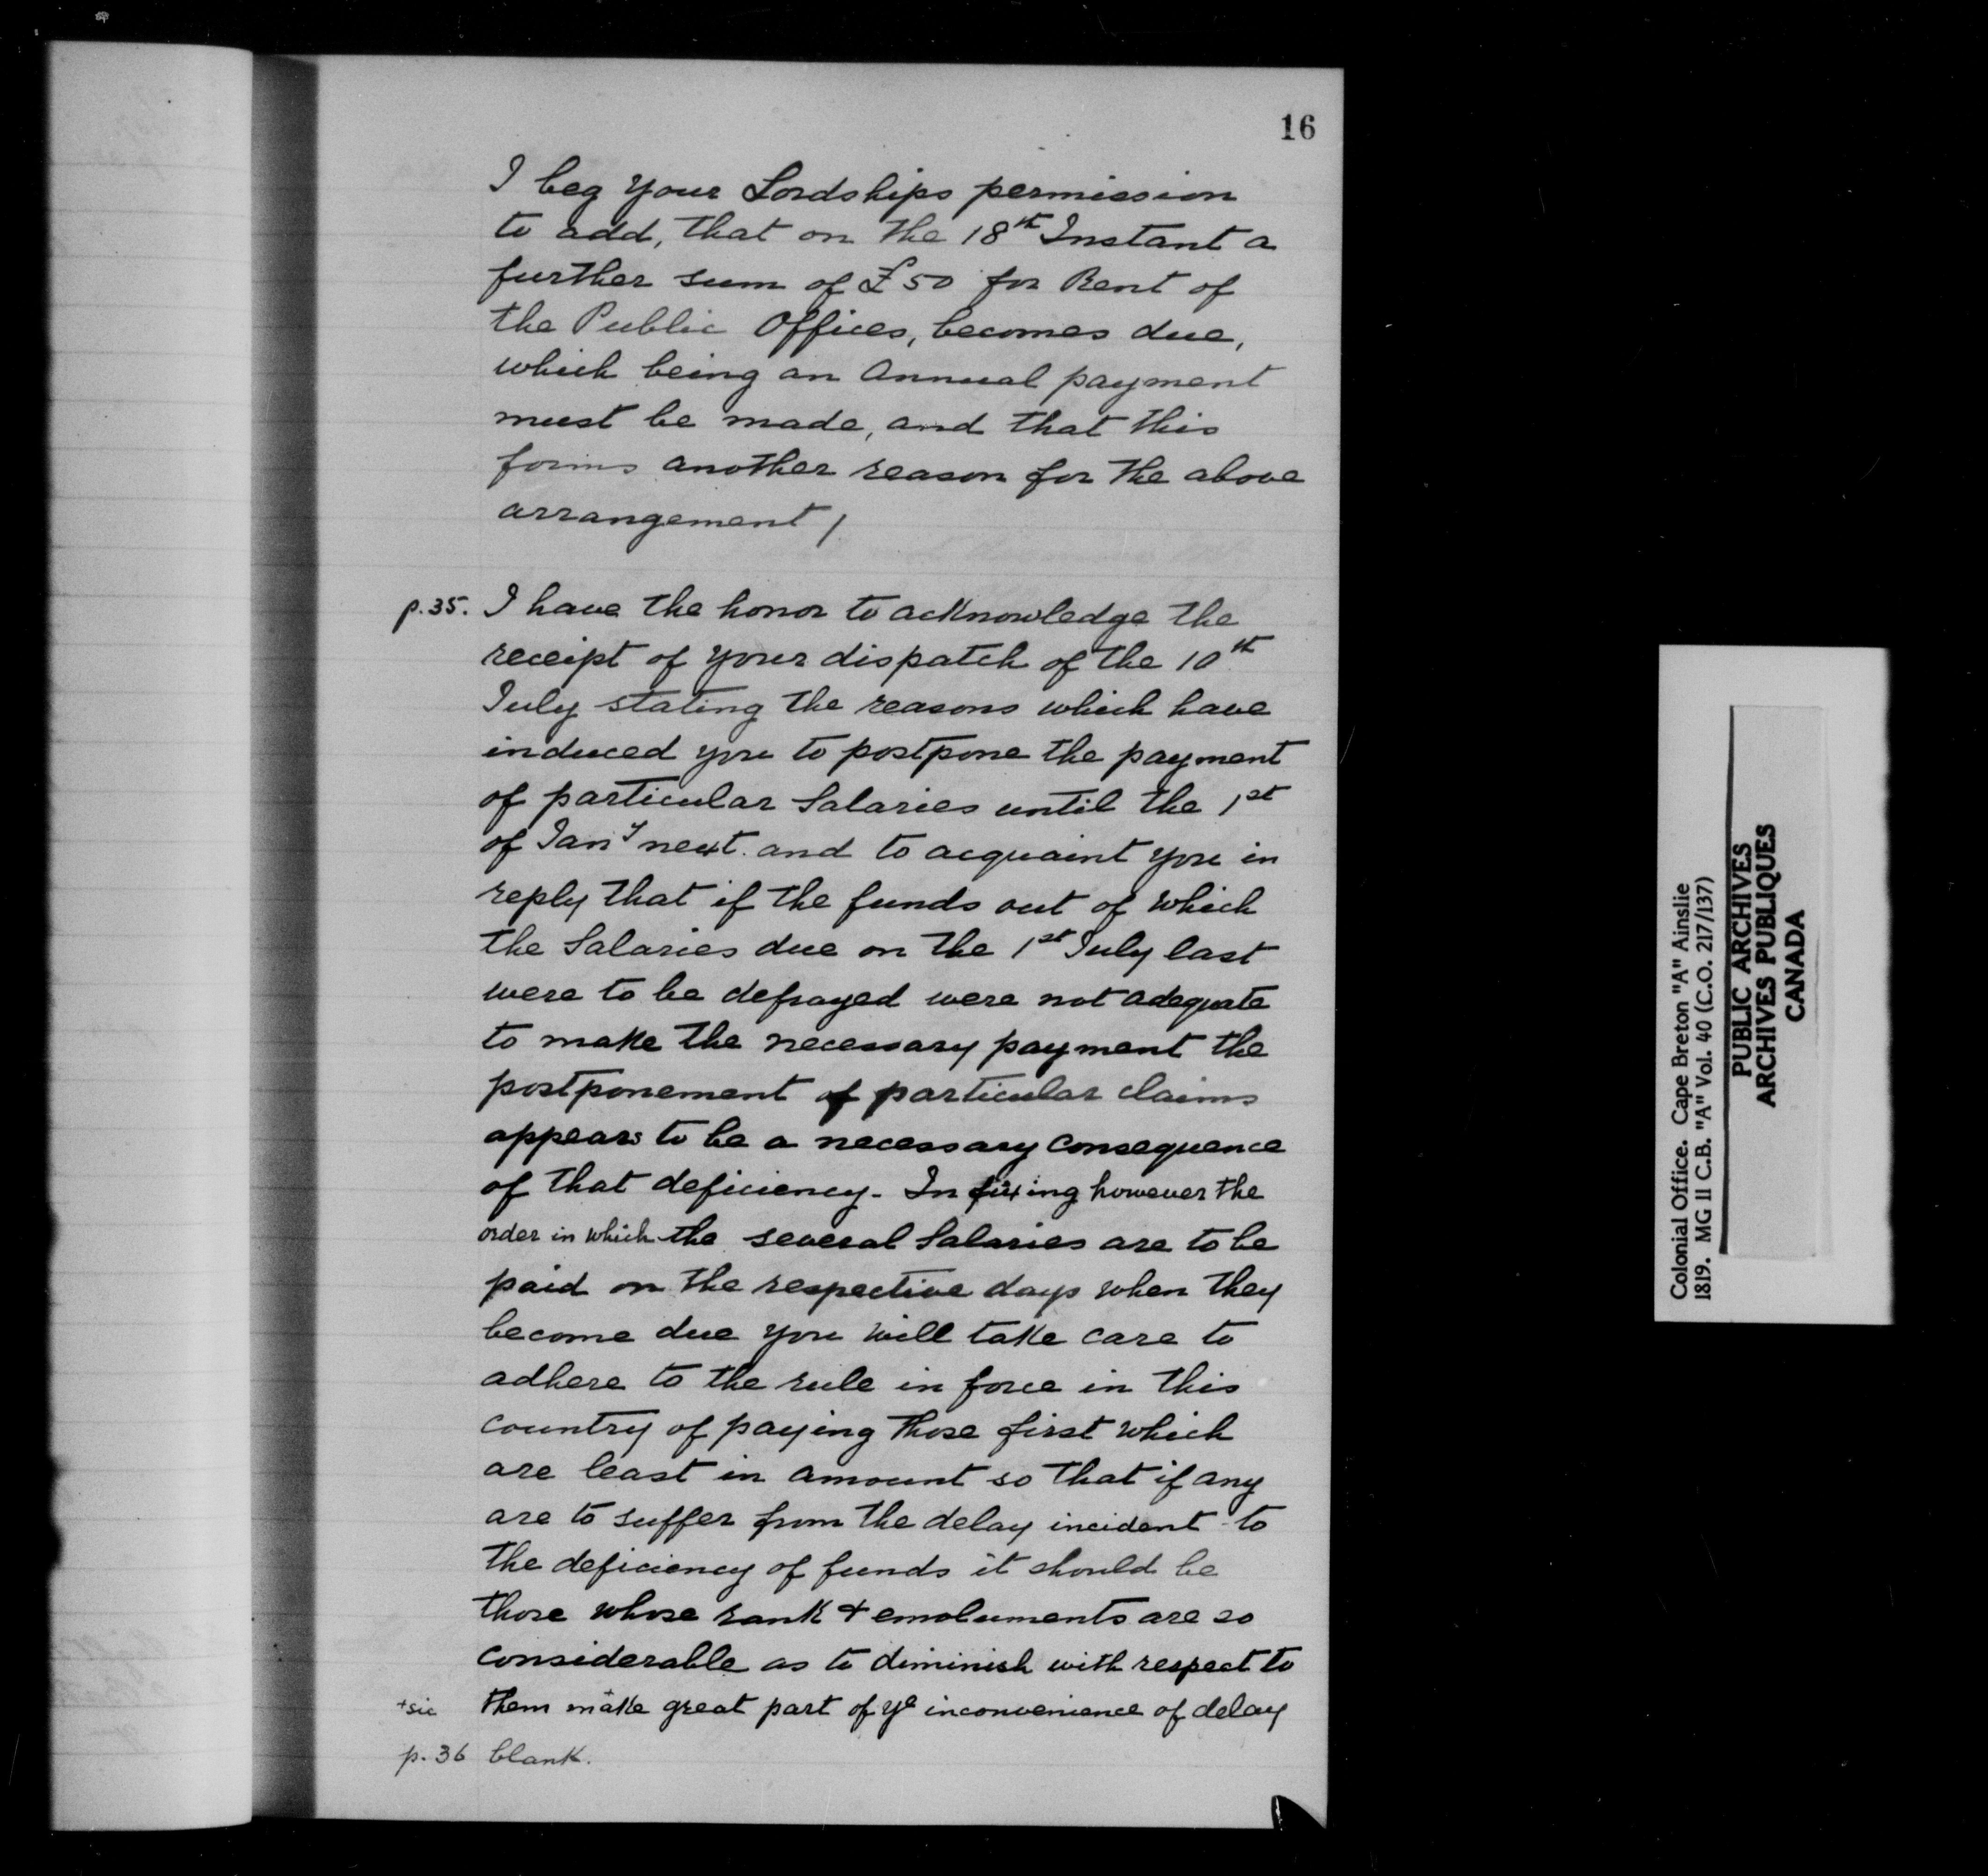 16
I beg your Lordships permission
to add, that on the 18th Instant a
further sum of £50 for Rent of
the Public Offices, becomes due,
which being an Annual payment
must be made, and that this
forms another reason for the above
arrangement /
p.35. I have the honor to acknowledge the
receipt of your dispatch of the 10th
July stating the reasons which have
induced you to postpone the payment
of particular Salaries until the 1st
of Jany next. and to acquaint you in
reply that if the funds out of which
the Salaries due on the 1st July last
were to be defrayed were not adequate
to make the necessary payment the
postponement of particular claims
appears to be a necessary consequence
of that deficiency - In fixing however the
order in which the several Salaries are to be
paid on the respective days when they
become due you will take care to
adhere to the rule in force in this
country of paying those first which
are least in amount so that if any
are to suffer from the delay incident to
the deficiency of funds it should be
those whose rank & emoluments are so
considerable as to diminish with respect to
+sic them make+ great part of ye inconvenience of delay
p. 36 blank.
Colonial Office. Cape Breton "A" Ainslie
1819. MG 11 C.B. "A" Vol. 40 (C.O. 217/137)
PUBLIC ARCHIVES
ARCHIVES PUBLIQUES
CANADA